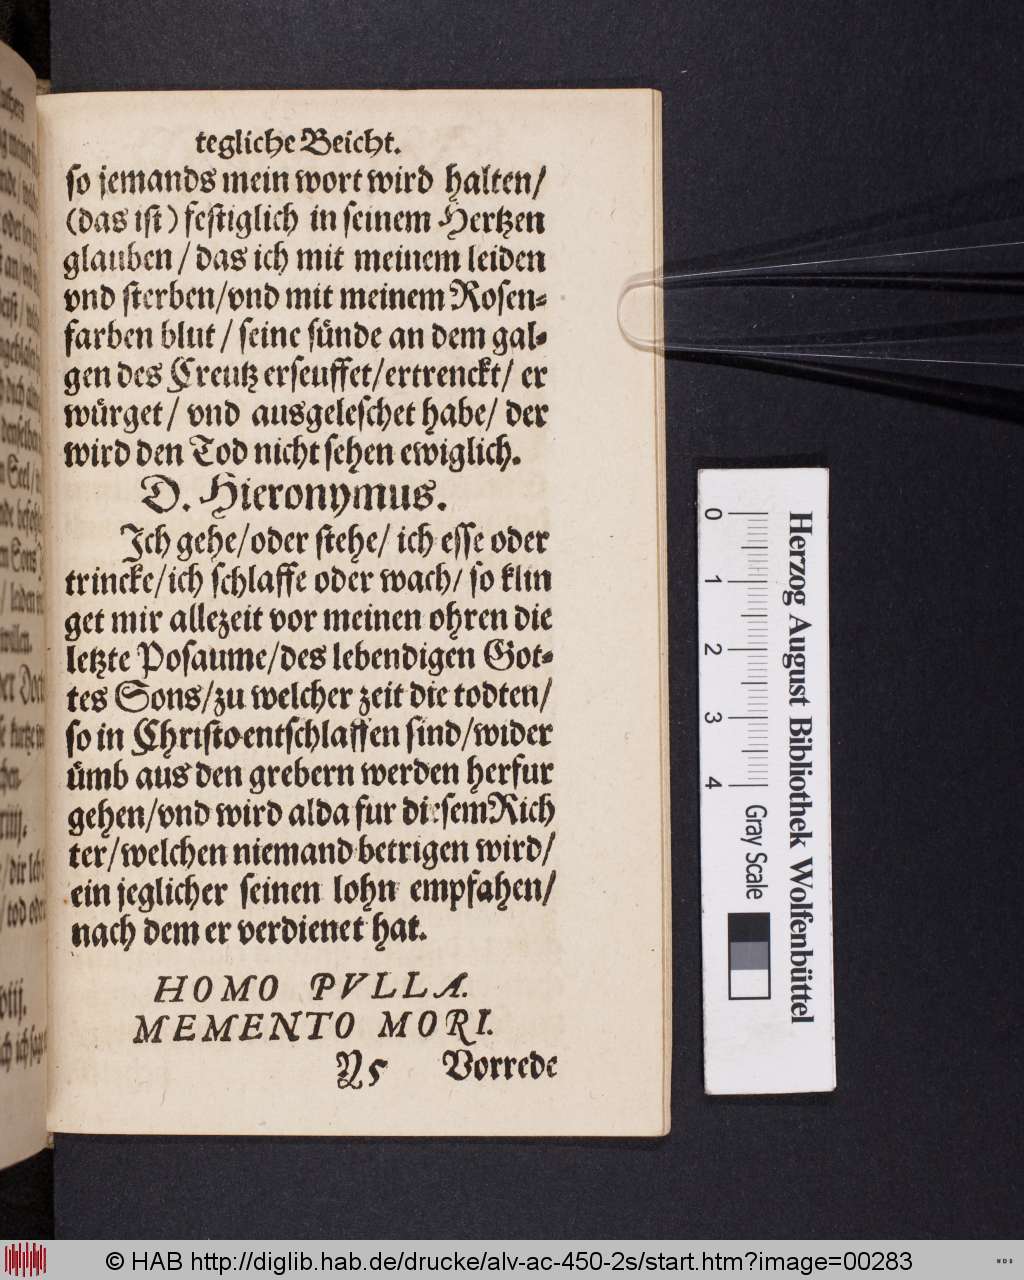 tegliche Beicht.
so jemands mein wort wird halten/
(das ist) festiglich in seinem Hertzen
glauben / das ich mit meinem leiden
vnd sterben/vnd mit meinem Rosen⸗
farben blut / seine sünde an dem gal⸗
gen des Creutz erseuffet/ertrenckt/ er
würget/ vnd ausgeleschet habe/ der
wird den Tod nicht sehen ewiglich.
D. Hieronymus.
Ich gehe/oder stehe/ ich esse oder
trincke/ich schlaffe oder wach/ so klin
get mir allezeit vor meinen ohren die
letzte Posaume/des lebendigen Got⸗
tes Sons/zu welcher zeit die todten/
so in Christo entschlaffen sind/wider
ümb aus den grebern werden herfur
gehen/vnd wird alda fur diesem Rich
ter/welchen niemand betrigen wird/
ein jeglicher seinen lohn empfahen/
nach dem er verdienet hat.
HOMO PVLLA.
MEMENTO MORI.
Y 5 Vorrede
0 1 2 3 4
Gray Scale
Herzog August Bibliothek Wolfenbüttel
© HAB http://diglib.hab.de/drucke/alv-ac-450-2s/start.htm?image=00283